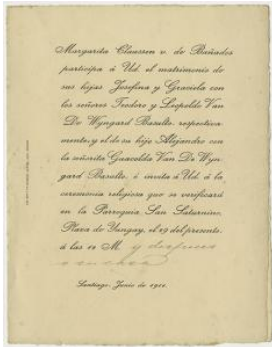 Margarita Claussen v. de Bañados
participa á Ud. el matrimonio de
sus hijas Josefina y Graciela con
los señores Teodoro y Leopoldo Van
De Wyngard Basalto, respectiva-
mente, y el de su hijo Alejandro con
la señorita Guacolda Van De Wyn
gard Basalto, é invita á Ud. á la
ceremonia religiosa que se verificará
en la Parroquia San Saturnino,
Plaza de Yungay, el 27 del presente,
á las 12 M. y despues
a su casa
Santiago, Junio de 1912.